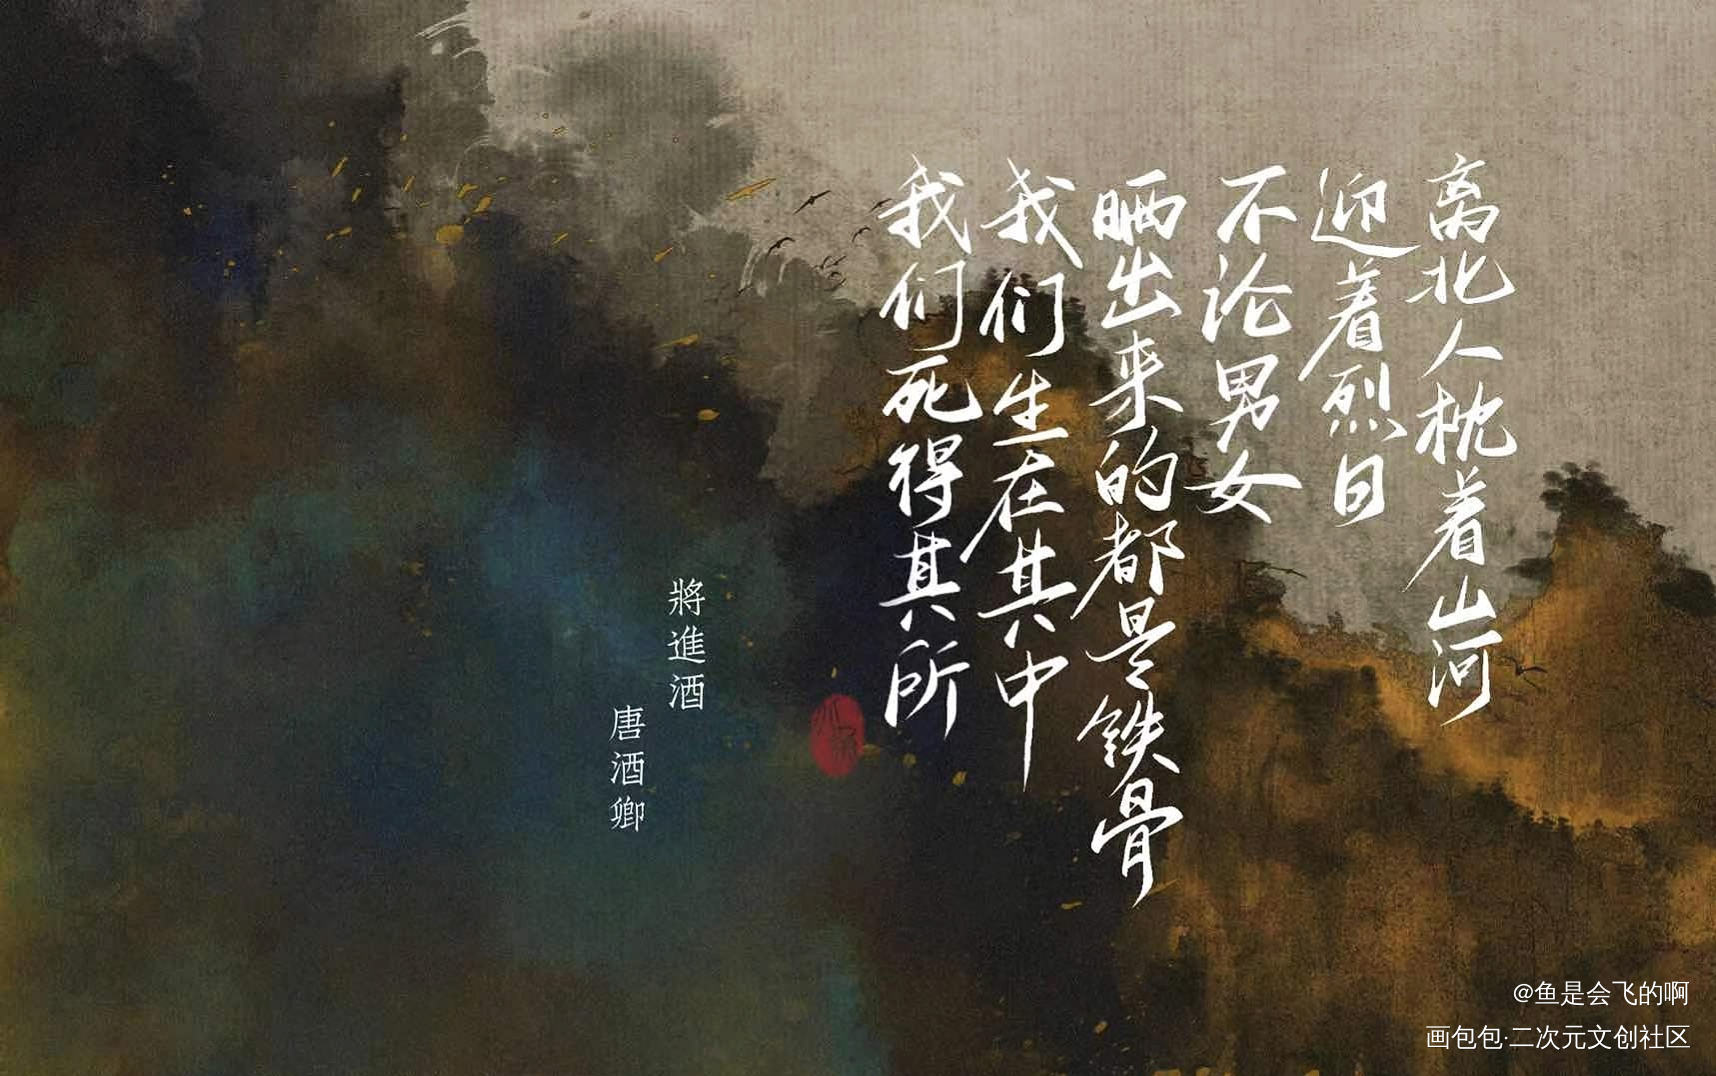 离北人枕着山河
迎着烈日
不论男女
晒出来的都是铁骨
我们生在其中
我们死得其所
將進酒
唐酒卿
@鱼是会飞的啊
画包包·二次元文创社区